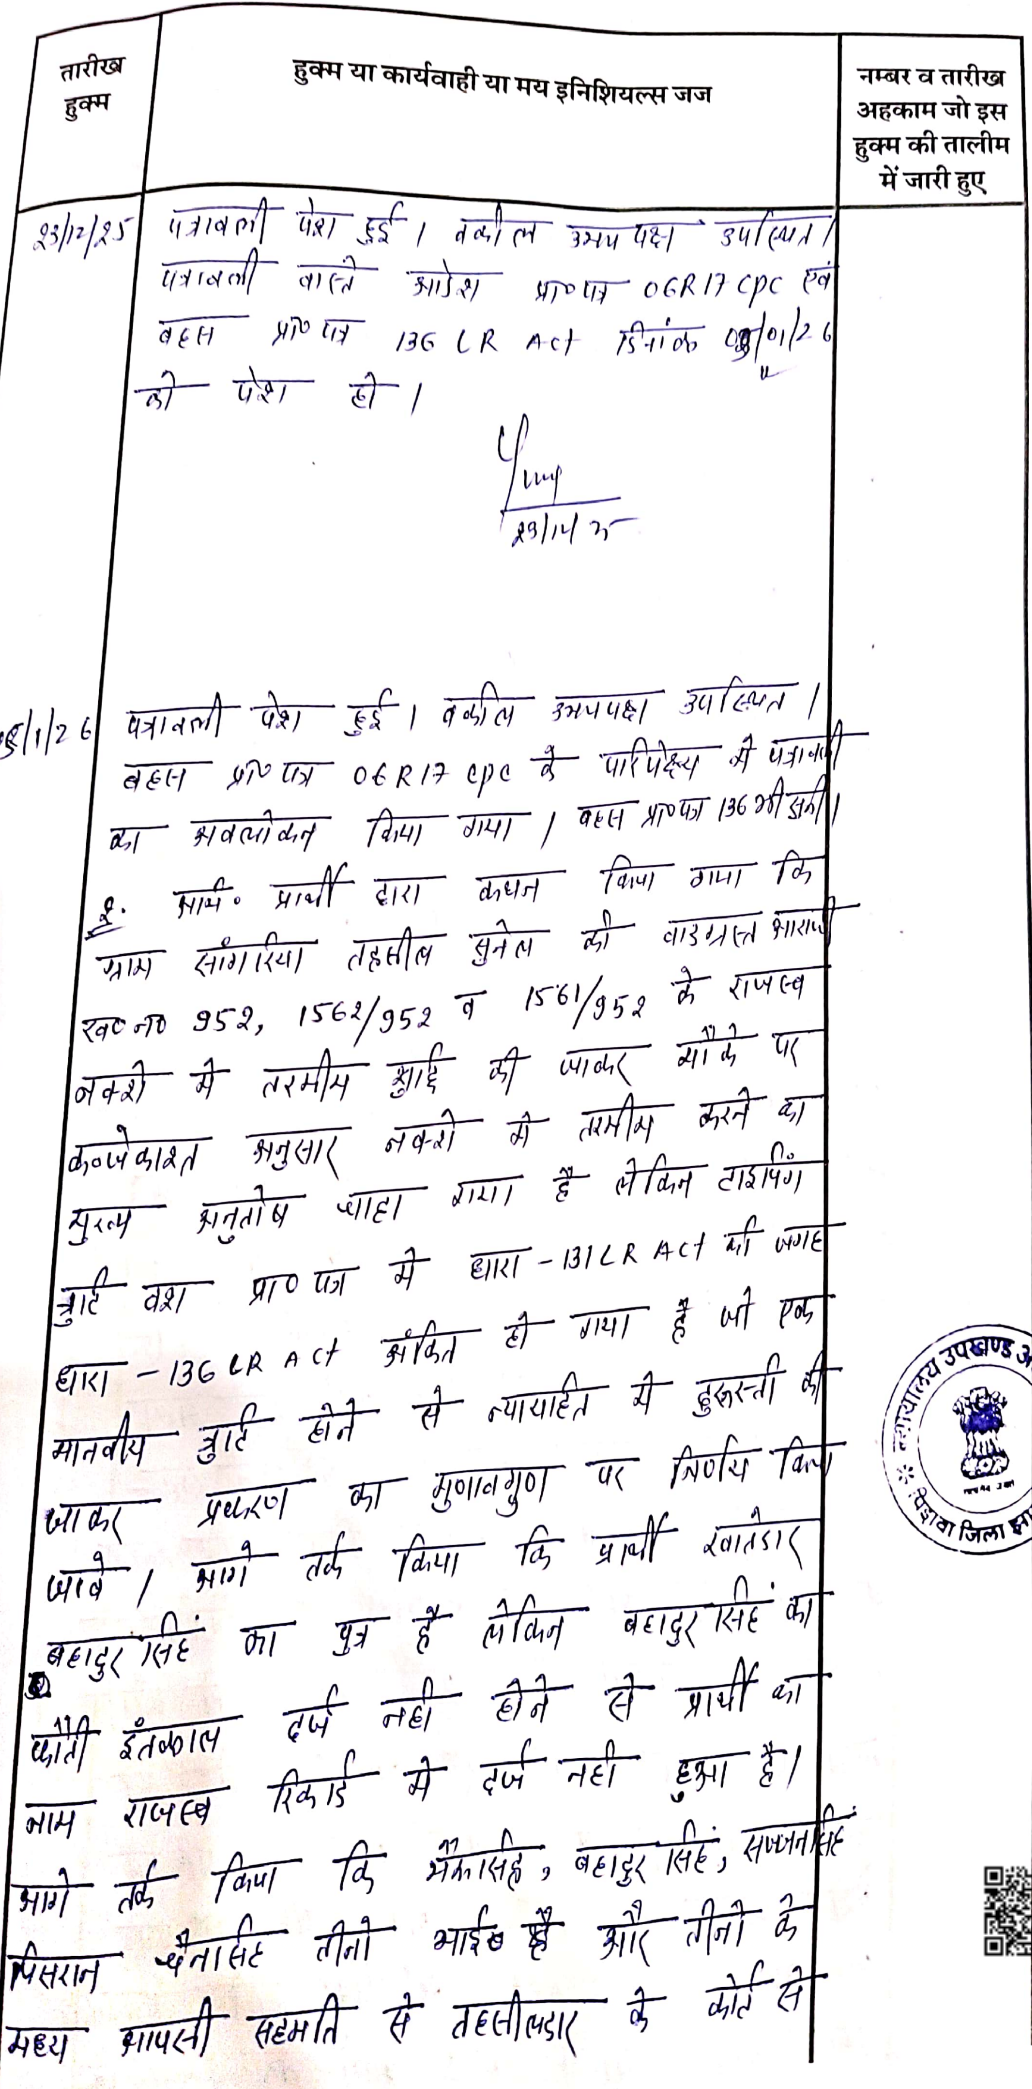 तारीख
हुक्म
हुक्म या कार्यवाही या मय इनिशियल्स जज
नम्बर व तारीख
अहकाम जो इस
हुक्म की तालीम
में जारी हुए
23/12/25 पत्रावली पेश हुई । वकील उभयपक्ष उपस्थित ।
पत्रावली वास्ते आदेश प्रा० पत्र O6R17 CPC एवं
बहस प्रा० पत्र 136 LR Act दिनांक /01/26
को पेश हो ।
23/12/25
/1/26 पत्रावली पेश हुई । वकील उभयपक्ष उपस्थित ।
बहस प्रा० पत्र O6R17 CPC के परिपेक्ष्य मे पत्रावली
का अवलोकन किया गया । बहस प्रा०पत्र 136 भी सुनी ।
2. प्रार्थी द्वारा कथन किया गया कि
ग्राम सांगरिया तहसील सुनेल की वादग्रस्त आराजी
ख० न० 952, 1562/952 व 1561/952 के राजस्व
नक्शे मे तरमीम शुद्धि की जाकर मौके पर
कब्जेकाश्त अनुसार नक्शे मे तरमीम करने का
मुख्य अनुतोष चाहा गया है लेकिन टाइपिंग
त्रुटि वश प्रा० पत्र मे धारा - 131 LR Act की जगह
धारा - 136 LR Act अंकित हो गया है जो एक
मानवीय त्रुटि होने से न्यायहित मे दुरूस्ती की
जाकर प्रकरण का गुणावगुण पर निर्णय किया
जावे । आगे तर्क किया कि प्रार्थी खातेदार
बहादुर सिंह का पुत्र है लेकिन बहादुर सिंह का
फौती इंतकाल दर्ज नही होने से प्रार्थी का
नाम राजस्व रिकार्ड मे दर्ज नही हुआ है।
आगे तर्क किया कि , बहादुर सिंह, सज्जनसिंह
पिसरान चैनसिंह तीनो भाई है और तीनो के
मध्य आपसी सहमति से तहसीलदार के कोर्ट से
न्यायालय उपखण्ड अ
पिड़ावा जिला झा